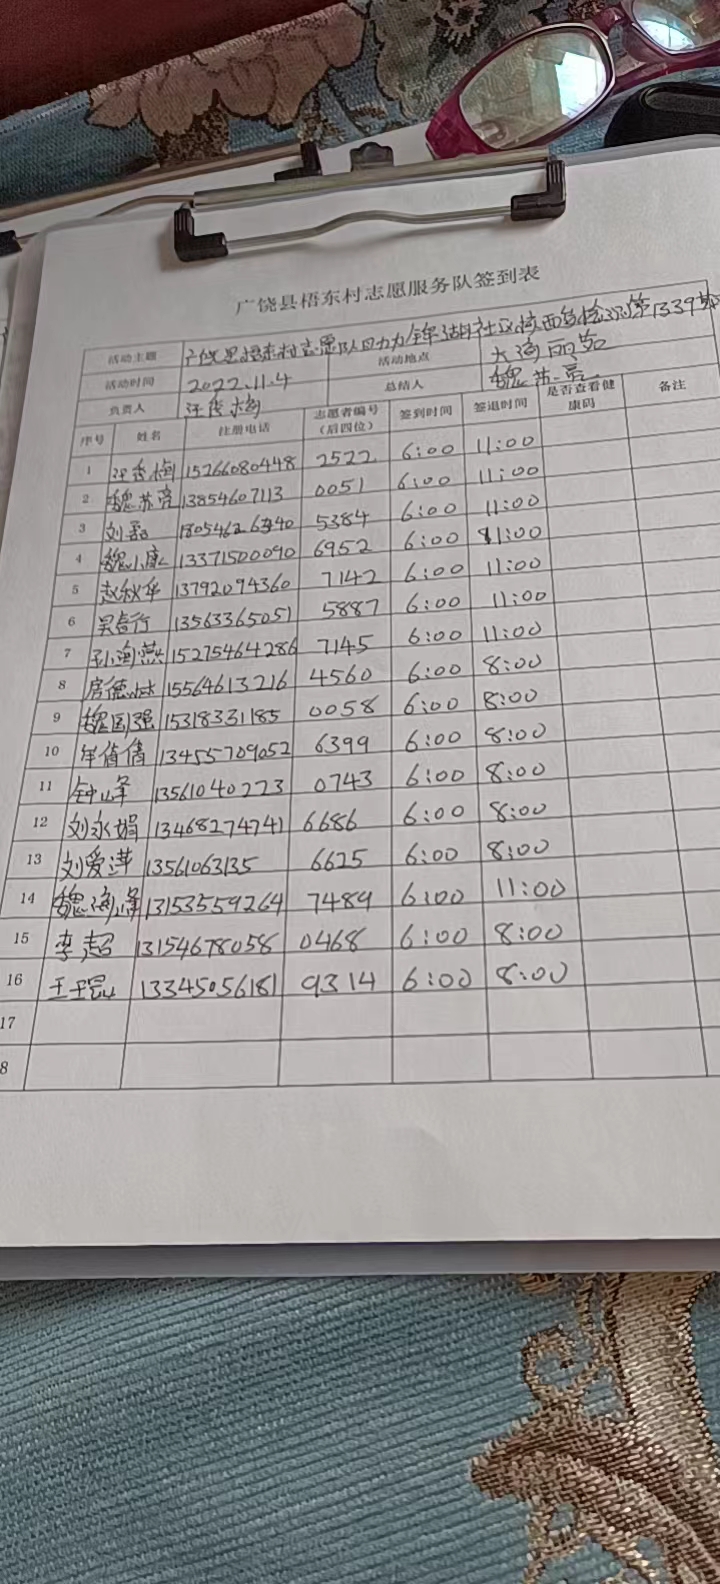 广饶县梧东村志愿服务队签到表
活动主题 广饶县梧东村志愿队助力 社区核酸检测第1339期
活动地点 大海丽苑
活动时间 2022.11.4 总结人 魏苏亮
负责人
序号 姓名 注册电话 志愿者编号（后四位） 签到时间 签退时间 是否查看健康码 备注
1 汪秀梅 15266080448 2522 6:00 11:00
2 魏苏亮 13854607113 0051 6:00 11:00
3 刘 5384 6:00 11:00
4 魏小康 13371500090 6952 6:00 11:00
5 赵秋华 13792094360 7142 6:00 11:00
6 吴 行 13563365051 5887 6:00 11:00
7 孙海燕 15275464286 7145 6:00 11:00
8 房德 15564613216 4560 6:00 8:00
9 魏国强 15318331185 0058 6:00 8:00
10 倩 13455709052 6399 6:00 8:00
11 钟峰 13561040223 0743 6:00 8:00
12 刘永娟 13468274741 6686 6:00 8:00
13 刘爱萍 13561063135 6625 6:00 8:00
14 魏海峰 13153559264 7489 6:00 11:00
15 李超 13154678058 0468 6:00 8:00
16 王 13345056181 9314 6:00 8:00
17
8